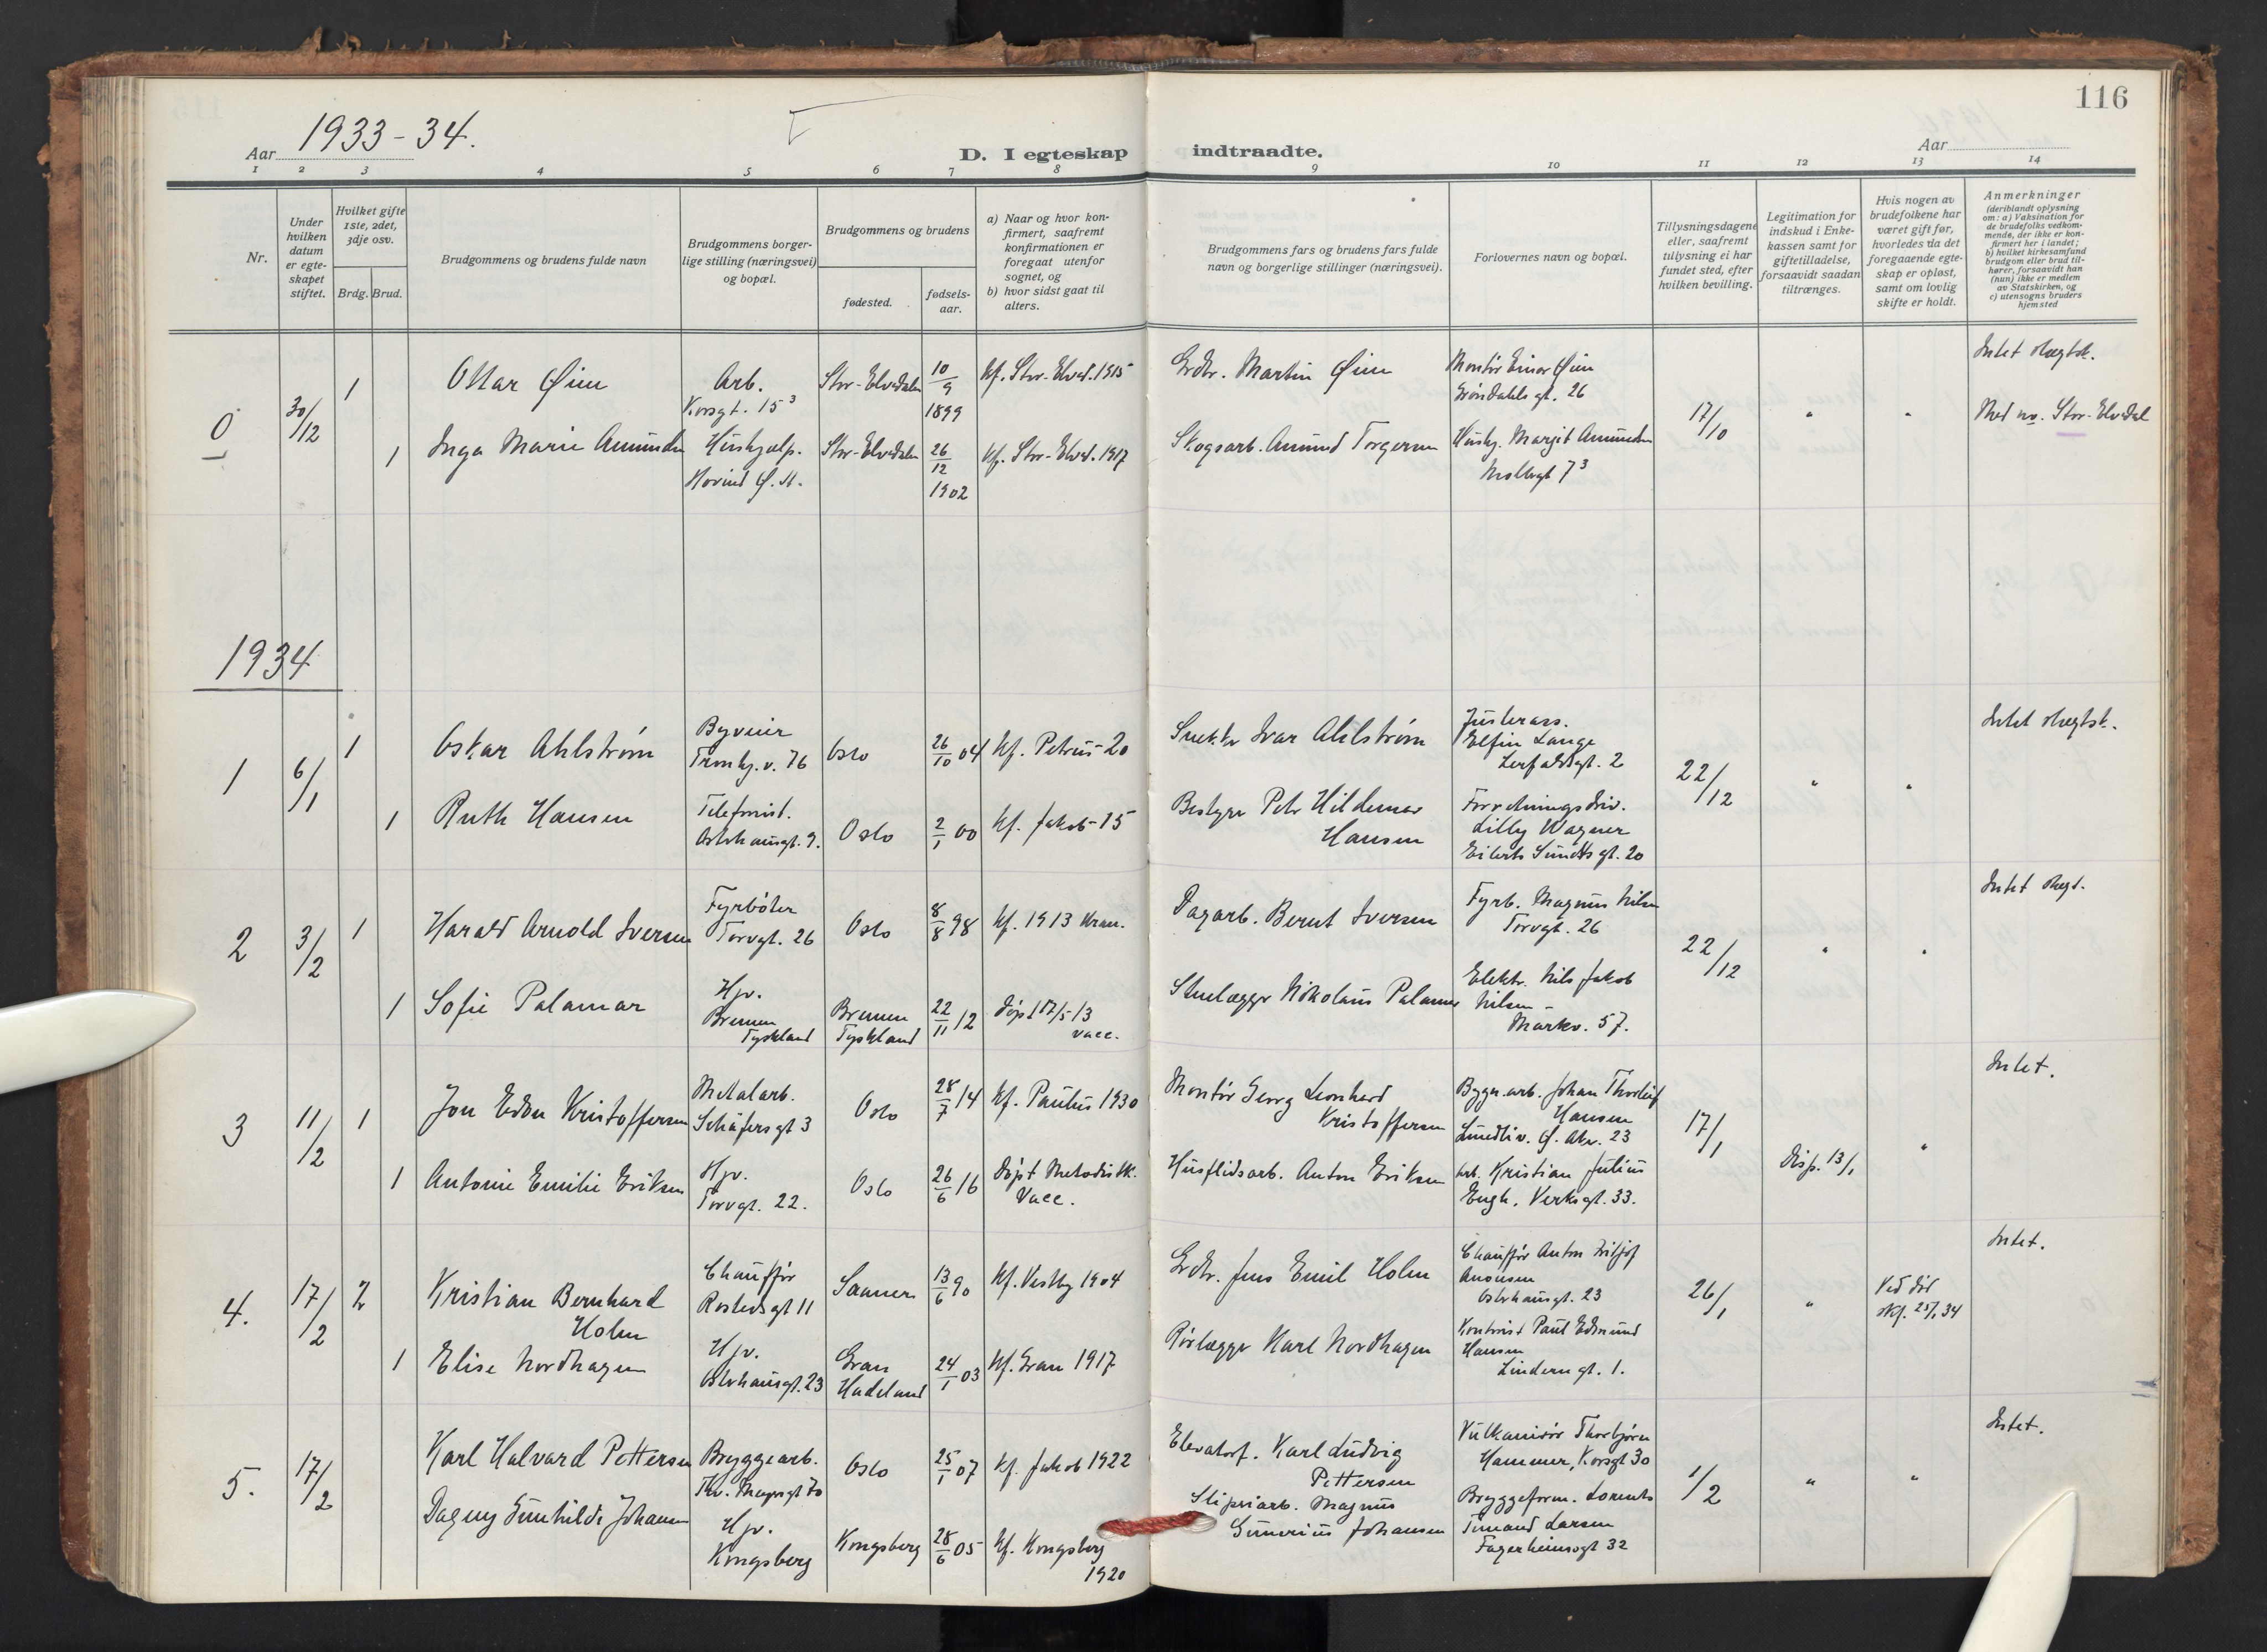 116
Aar 1933-34.
D. I egteskap indtraadte.
Aar
1 2 3 4 5 6 7 8 9 10 11 12 13 14
Nr.
Under
hvilken
datum
er egte-
skapet
stiftet.
Hvilket gifte
1ste, 2det,
3dje osv.
Brdg. Brud.
Brudgommens og brudens fulde navn
Brudgommens borger-
lige stilling (næringsvei)
og bopæl.
Brudgommens og brudens
fødested.
fødsels-
aar.
a) Naar og hvor kon-
firmert, saafremt
konfirmationen er
foregaat utenfor
sognet, og
b) hvor sidst gaat til
alters.
Brudgommens fars og brudens fars fulde
navn og borgerlige stillinger (næringsvei).
Forlovernes navn og bopæl.
Tillysningsdagene
eller, saafremt
tillysning ei har
fundet sted, efter
hvilken bevilling.
Legitimation for
indskud i Enke-
kassen samt for
giftetilladelse,
forsaavidt saadan
tiltrænges.
Hvis nogen av
brudefolkene har
været gift før,
hvorledes da det
foregaaende egte-
skap er opløst,
samt om lovlig
skifte er holdt.
Anmerkninger
(deriblandt oplysning
om: a) Vaksination for
de brudefolks vedkom-
mende, der ikke er kon-
firmert her i landet;
b) hvilket kirkesamfund
brudgom eller brud til-
hører, forsaavidt han
(hun) ikke er medlem
av Statskirken, og
c) utensogns bruders
hjemsted
0
30/12
1
Ottar Øien
Arb.
Korsgt. 15³
Stor-Elvedalen
10/9
1899
Kf. Stor-Elved. 1915
Grdbr. Martin Øien
Montør Einar Øien
Grøndahls gt. 26
17/10
Intet slegtsk.
Med nr. Stor-Elvedal
1
Inga Marie Amundsen
Hushjælp.
Hovind Ø. A.
Stor-Elvedalen
26/12
1902
Kf. Stor-Elved. 1917
Skogsarb. Amund Torgersen
Hushj. Margit Amundsen
Møllergt 7³
1934
1
6/1
1
Oskar Ahlstrøm
Byveier
Trondhj. v. 76
Oslo
26/10 04
Kf. Petrus 20
Snekker Ivar Ahlstrøm
Justerass.
Elfin Lange
Lerfaldsgt. 2
22/12
Intet slegtsk.
1
Ruth Hansen
Telefonist.
Osterhausgt. 9.
Oslo
2/1 00
Kf. Jakob 15
Bestyrer Petr Hildemar
Hansen
Forretningsdriv.
Lilly Wagner
Eilerts Sundts gt. 20
2
3/2
1
Harald Arnold Iversen
Fyrbøter
Torvgt. 26
Oslo
8/8 98
Kf. 1913
Dagarb. Bernt Iversen
Fyrb. Magnus Nilsen
Torvgt. 26
22/12
Intet slegt.
1
Sofie Palamar
Hjv.
Bremen
Tyskland
Bremen
Tyskland
22/11 12
døpt 17/5-13
vacc.
Stenlægger Nikolaus Palamar
Elektr. Nils Jakob
Nilsen -
Markv. 57.
3
11/2
1
Jon Edon Kristoffersen
Metalarb.
Schäfersgt 3
Oslo
28/7 14
Kf. Paulus 1930
Montør Georg Leonhard
Kristoffersen
Bygn.arb. Johan Thorleif
Hansen
Lundliv. Ø. Akr. 23
17/1
Disp. 13/1
Intet.
1
Antonie Emilie Eriksen
Hjv.
Torvgt. 22.
Oslo
26/6 16
døpt Metodistk.
Vacc.
Husflidsarb. Anton Eriksen
Arb. Kristian Julius
Engh. Verksgt. 33.
4.
17/2
2
Kristian Bernhard
Holm
Chauffør
Rostedsgt 11
Saaner
13/6 90
Kf. Vestby 1904
Grdbr. Jens Emil Holm
Chauffør Anton Fritjof
Osterhausgt. 23
26/1
Ved død
skf. 25/1 34
Intet.
1
Elise Nordhagen
Hjv.
Osterhausgt. 23
Gran
Hadeland
24/1 03
Kf. Gran 1917
Rørlægger Karl Nordhagen
Kontorist Paul Edmund
Hansen
Lindern gt. 1.
5.
17/2
Karl Halvard Pettersen
Bryggearb.
Oslo
25/1 07
Kf. Jakob 1922
Elevatorf. Karl Ludvig
Pettersen
Vulkanisør Thorbjørn
Hammer, Korsgt 30
1/2
Intet.
Dagny Gunhilde Johansen
Hjv.
Kongsberg
Kongsberg
28/6 05
Kf. Kongsberg
1920
Sliperiarb. Magnus
Gunerius Johansen
Bryggeform. Lorents
Larsen
Fagerheimsgt 32